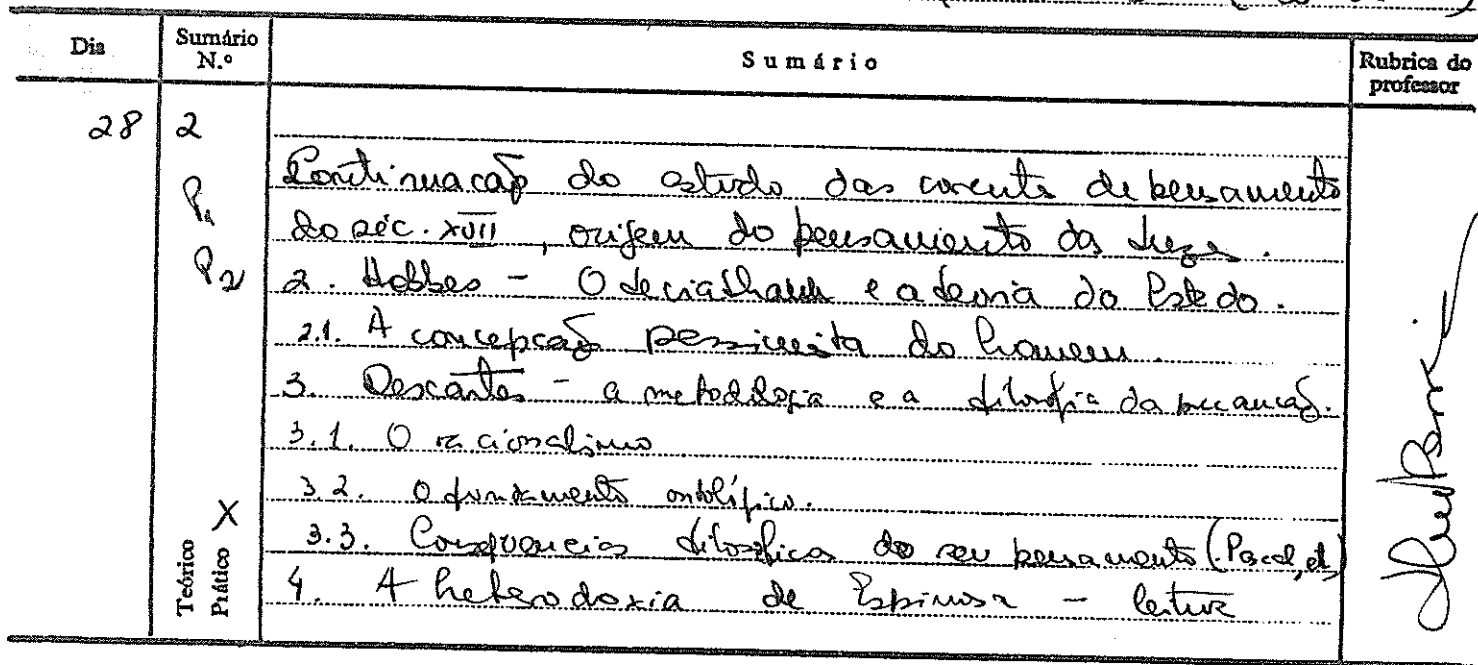 Dia
Sumário N.º
Sumário
Rubrica do professor
28
2
P1
P2
Continuação do estudo das corrente de pensamento
do séc. XVII, origem do pensamento das Luzes.
2. Hobbes - O Leviathan e a teoria do Estado.
2.1. A concepção pessimista do homem.
3. Descartes - a metodologia e a filosofia da
3.1. O racionalismo
3.2. O fundamento ontológico.
3.3. Consequencias filosofica do seu pensamento (Pascal, etc)
4. A heterodoxia de Espinosa - leitura
Teórico
Prático X